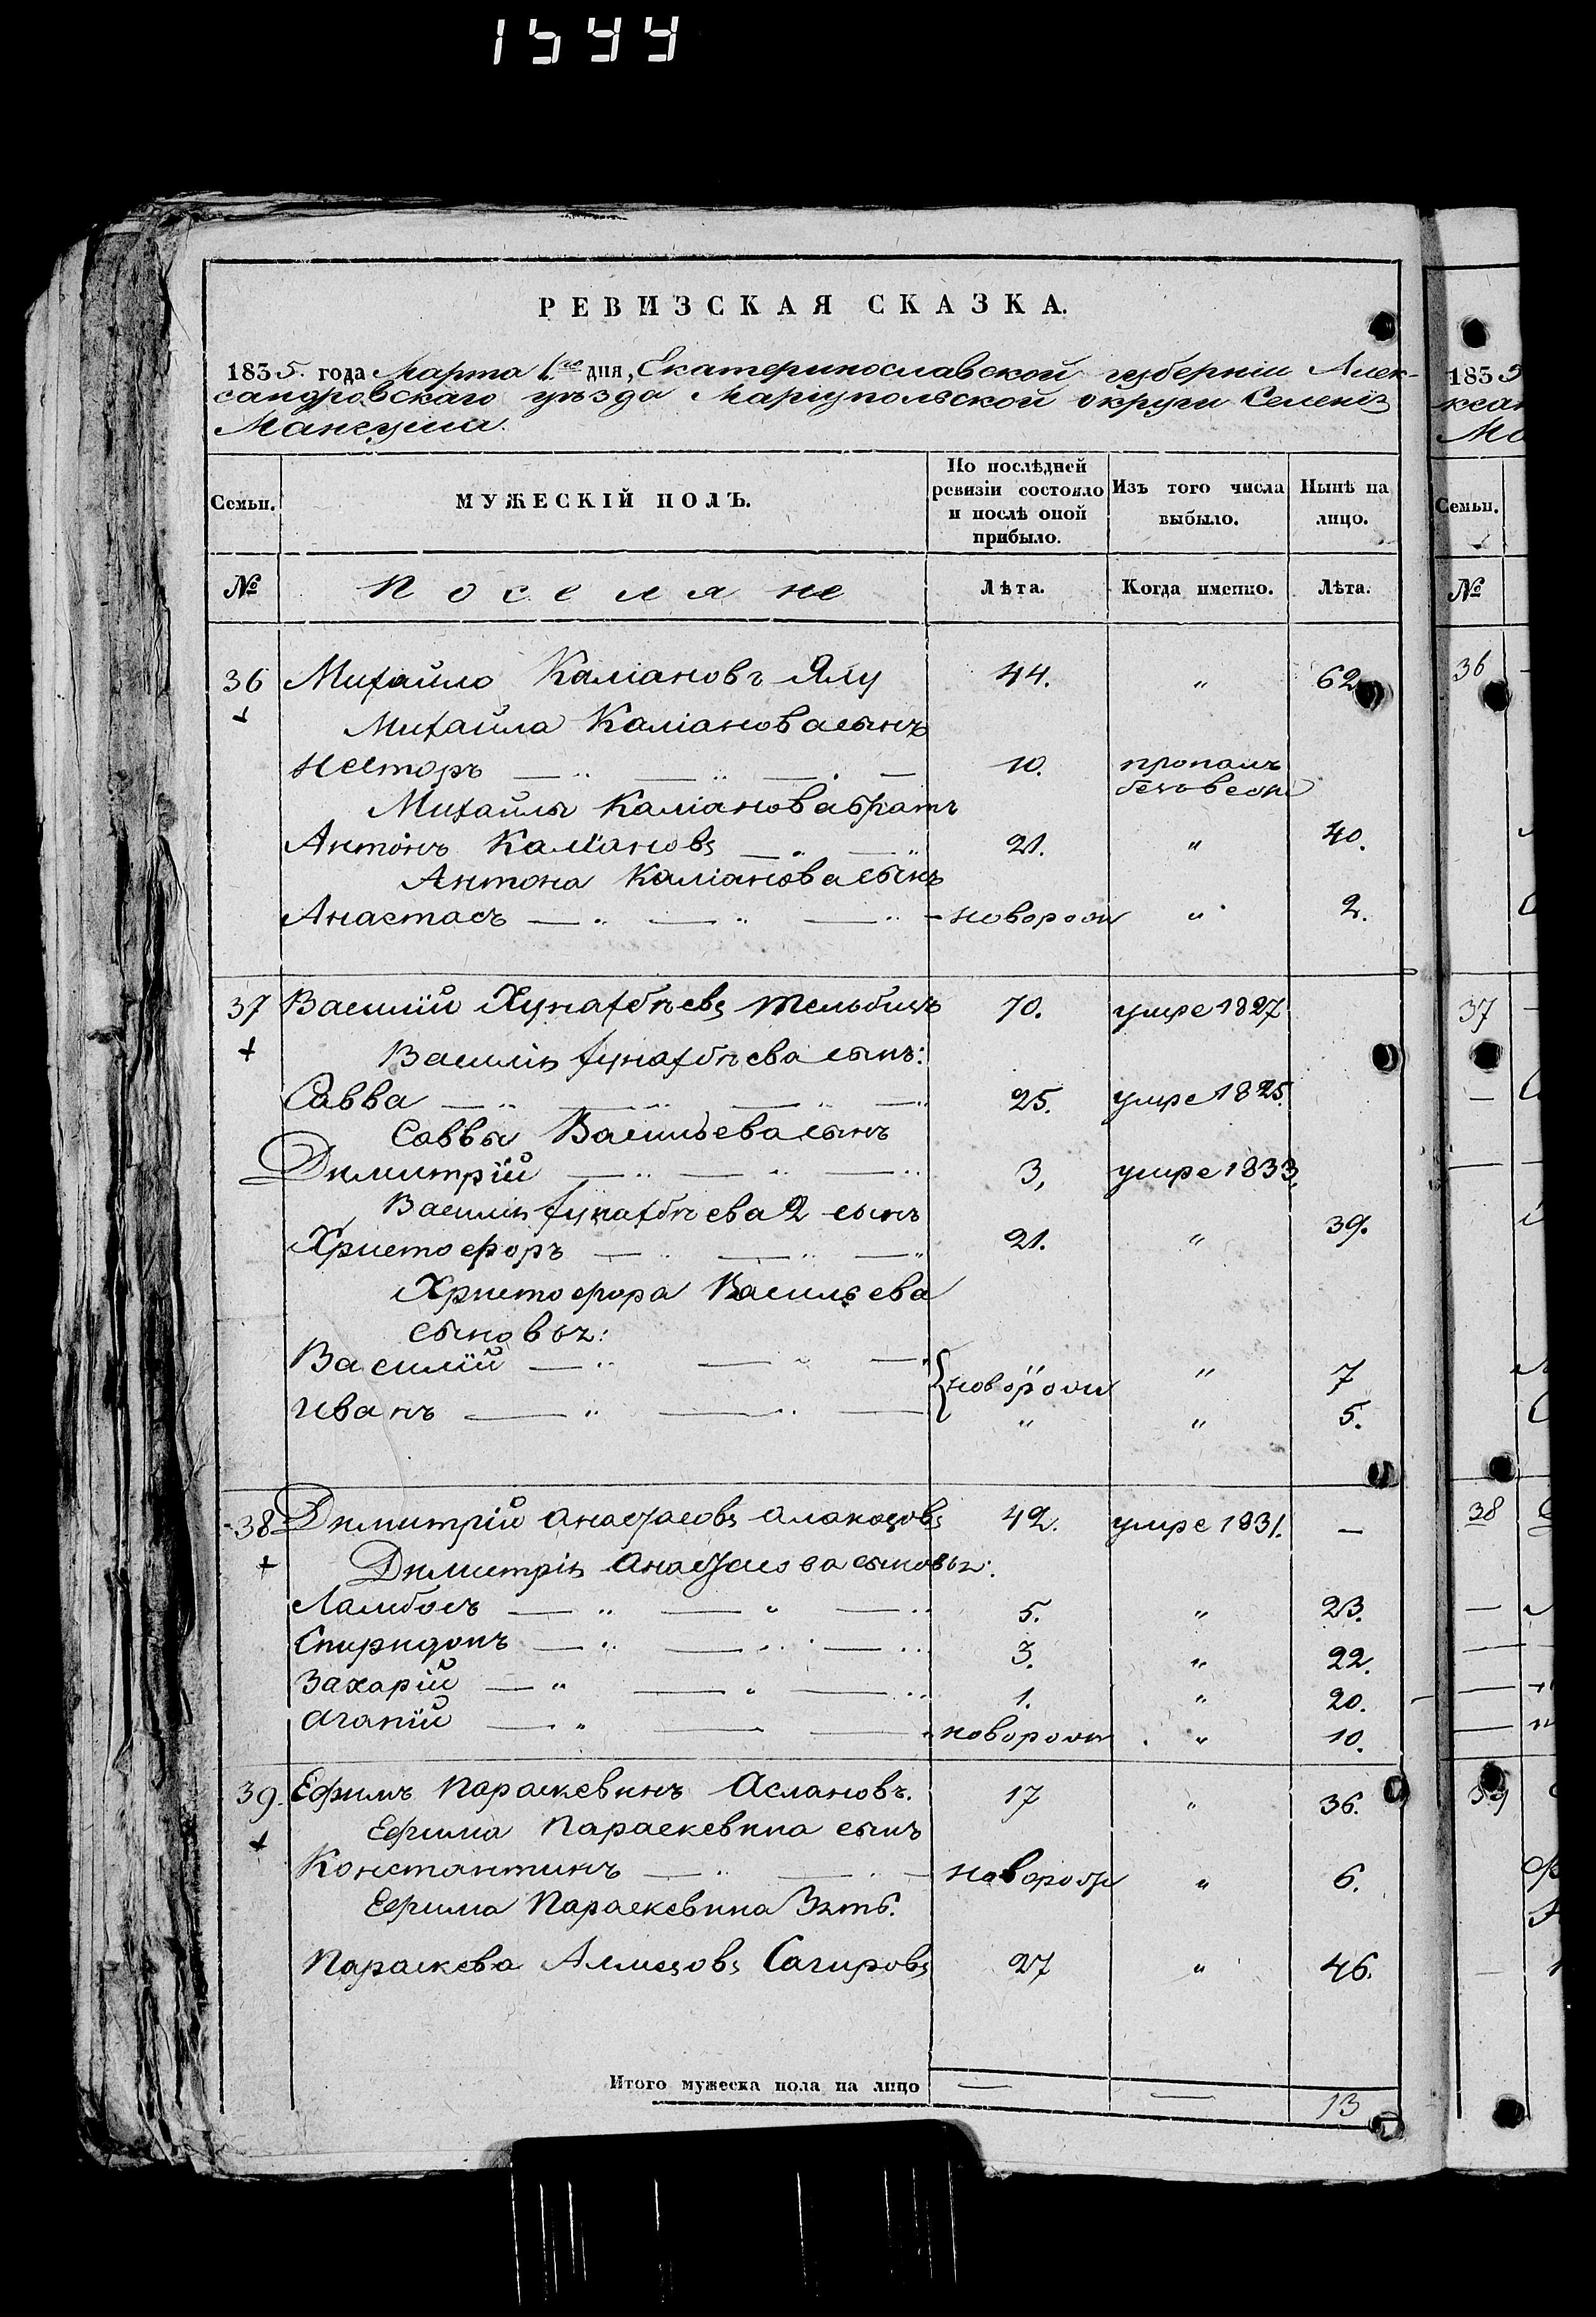 1544
РЕВИЗСКАЯ СКАЗКА.
1835. года Марта 1го дня, Екатеринославской губерніи Алек-
сандровскаго уѣзда Маріупольской округи Селенія
Мангуша.
Семьи.
МУЖЕСКІЙ ПОЛЪ.
По послѣдней ревизіи состояло и послѣ оной прибыло.
Изъ того числа выбыло.
Нынѣ на лицо.
№ Поселяне Лѣта. Когда именно. Лѣта.
36 Михайло Каліановъ Ялу 44. " 62
Михайла Каліанова сынъ
Несторъ 10. пропалъ безъ вести
Михайлы Каліанова братъ
Антонъ Каліановъ 21. " 40.
Антона Каліанова сынъ
Анастасъ новорож " 2.
37 Василій Хунахбѣевъ Тельбизъ 70. умре 1827
Василія Хунахбѣева сынъ:
Савва 25. умре 1825.
Саввы Васильева сынъ
Димитрій 3, умре 1833.
Василія Хунахбѣева 2 сынъ
Христофоръ 21. " 39.
Христофора Васильева
сыновьи:
Василій новорожи " 7
Иванъ " " 5.
38 Димитрій Анастасовъ 42. умре 1831. —
Димитрія Анастасова сыновьи:
Ламбосъ 5. " 23.
Спиридонъ 3. " 22.
Захарій 1. " 20.
Агапій новорожи " 10.
39. Ефимъ Параскевинъ Аслановъ. 17 " 36.
Ефима Параскевина сынъ
Константинъ новорож " 6.
Ефима Параскевина Зять.
Параскева Сагировъ 27 " 46.
Итого мужеска пола на лицо — — 13
1835
Семьи.
№
36
37
38
39